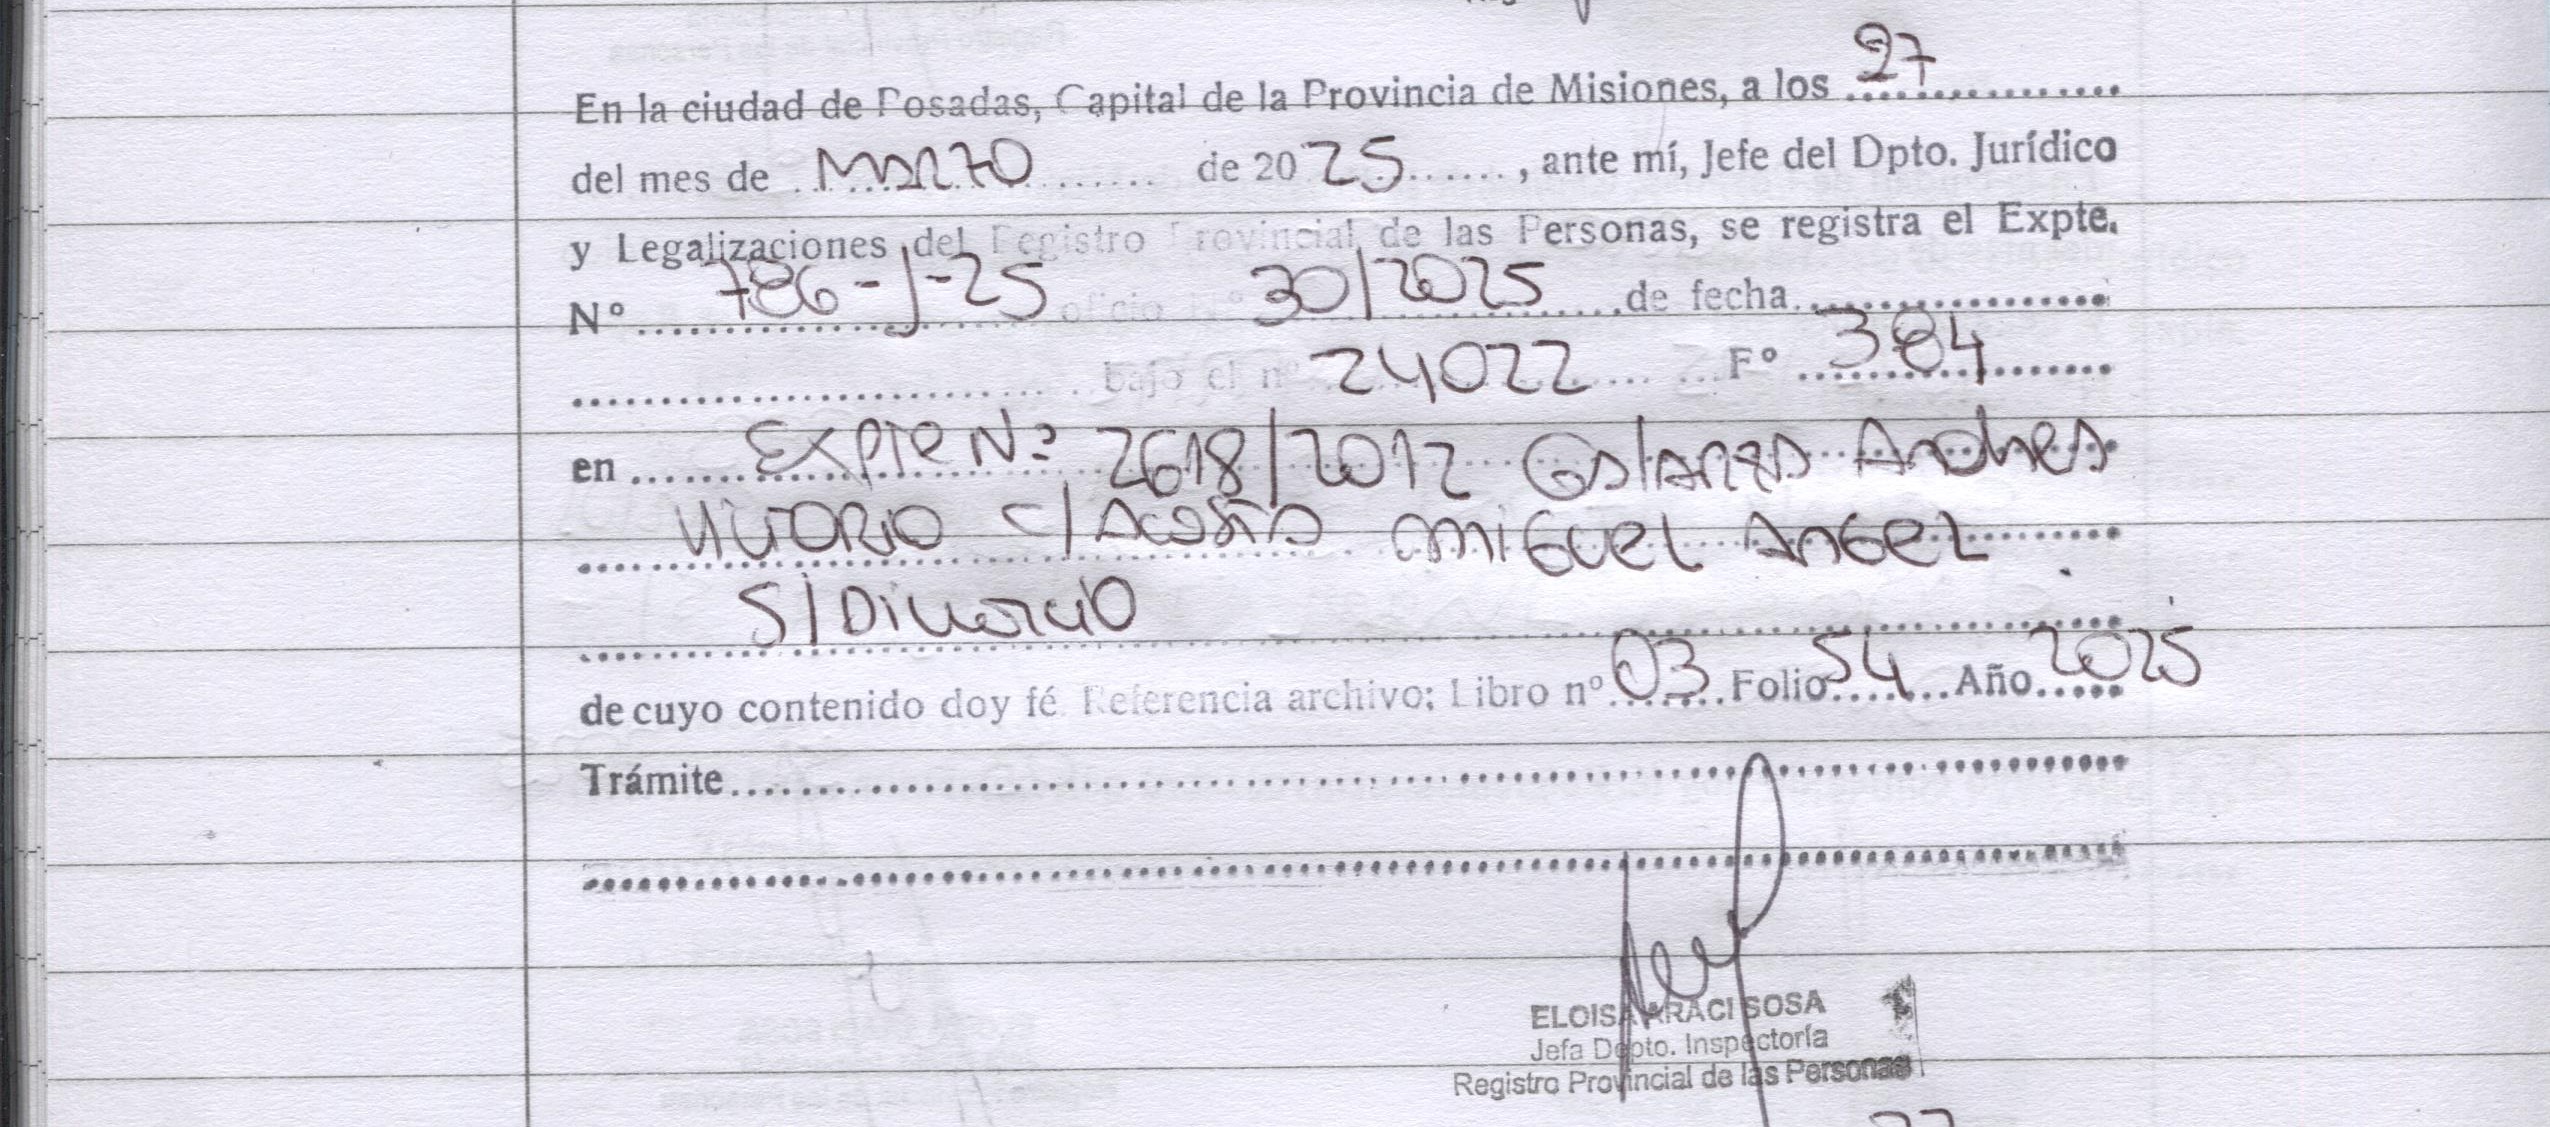 En la ciudad de Posadas, Capital de la Provincia de Misiones, a los 27
del mes de Marzo de 2025, ante mí, Jefe del Dpto. Jurídico
y Legalizaciones del Registro Provincial de las Personas, se registra el Expte.
Nº 786-J-25 oficio Nº 30/2025 de fecha
bajo el nº 24022 Fº 384
en Expte Nº 2618/2012 Galarza Andrea
Victorio c/ Acosta Miguel Angel
S/ Divorcio
de cuyo contenido doy fé. Referencia archivo: Libro nº 03 Folio 54 Año 2025
Trámite
ELOISA ARACI SOSA
Jefa Depto. Inspectoría
Registro Provincial de las Personas